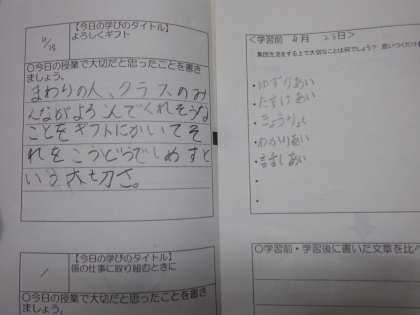 4/18
【今日の学びのタイトル】
よろしくギフト
○今日の授業で大切だと思ったことを書き
ましょう。
まわりの人、クラスのみ
んながよろこんでくれそうな
ことをギフトにかいてそ
れをこうどうでしめすと
いう大切さ。
/
【今日の学びのタイトル】
係の仕事に取り組むときに
○今日の授業で大切だと思ったことを書き
ましょう。
<学習前 4月 25日>
集団生活をする上で大切なことは何でしょう?
・ゆずりあい
・たすけあい
・きょうりょく
・わかりあい
・話しあい
○学習前・学習後に書いた文章を比べ